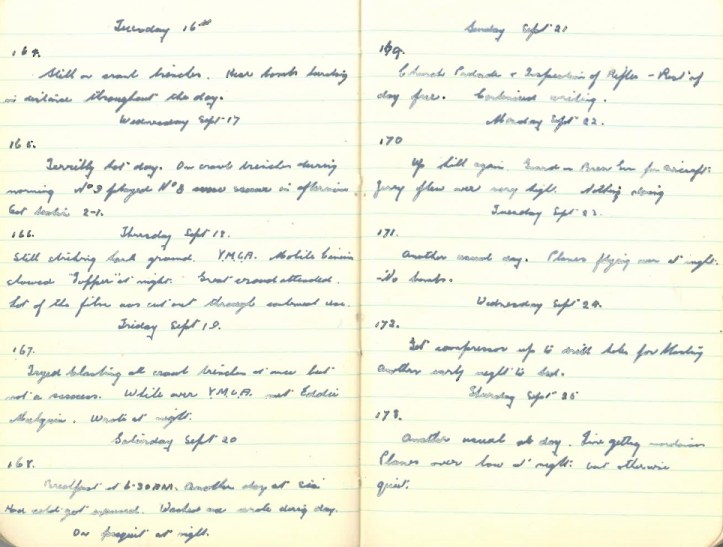 Tuesday 16th
164.
Still on crawl trenches. Hear bombs bursting
in distance throughout the day.
Wednesday Sept 17
165.
Terribly hot day. On crawl trenches during
morning No 9 played No 8 soccer in afternoon
Got beaten 2-1.
166. Thursday Sept 18.
Still clicking hard ground. Y.M.C.A. Mobile Cinema
showed "Topper" at night. Great crowd attended.
Lot of the film was cut out through continual use.
Friday Sept 19.
167.
Tryed blasting all crawl trenches at once but
not a success. While over Y.M.C.A. met Eddie
Wrote at night.
Saturday Sept 20
168.
Breakfast at 6.30 AM. Another day at
Washed and wrote during day.
On picquet at night.
Sunday Sept 21
169.
Church Parade & Inspection of Rifles - Rest of
day free. Continued writing.
Monday Sept 22.
170
Up hill again. Guard on Bren Gun for aircraft.
Jerry flew over very high. Nothing doing
Tuesday Sept 23.
171.
Another usual day. Planes flying over at night.
No bombs.
Wednesday Sept 24.
172.
Got compressor up to drill holes for blasting
another early night to bed.
Thursday Sept 25
173.
Another usual day. Time getting
Planes over low at night: but otherwise
quiet.